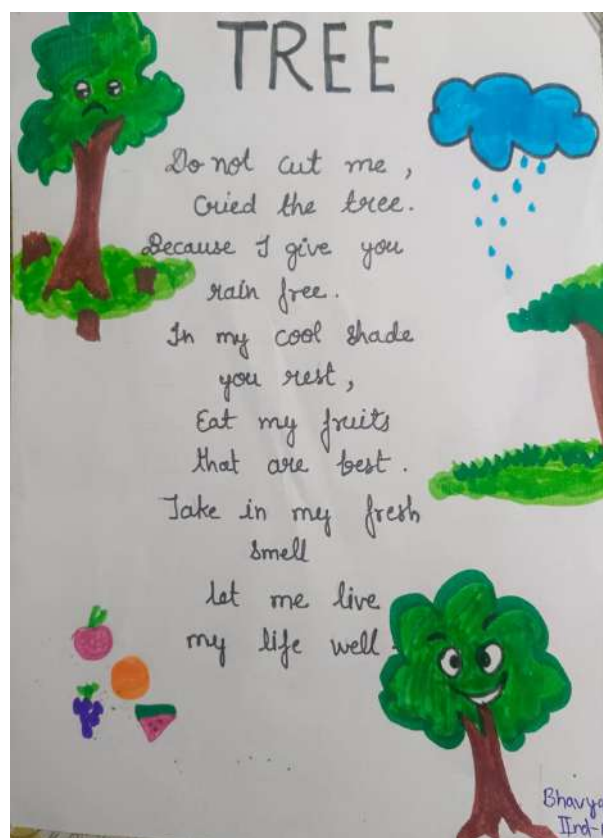 TREE
Do not cut me,
Cried the tree.
Because I give you
rain free.
In my cool shade
you rest,
Eat my fruits
that are best.
Take in my fresh
smell
let me live
my life well.
Bhavya
IInd-